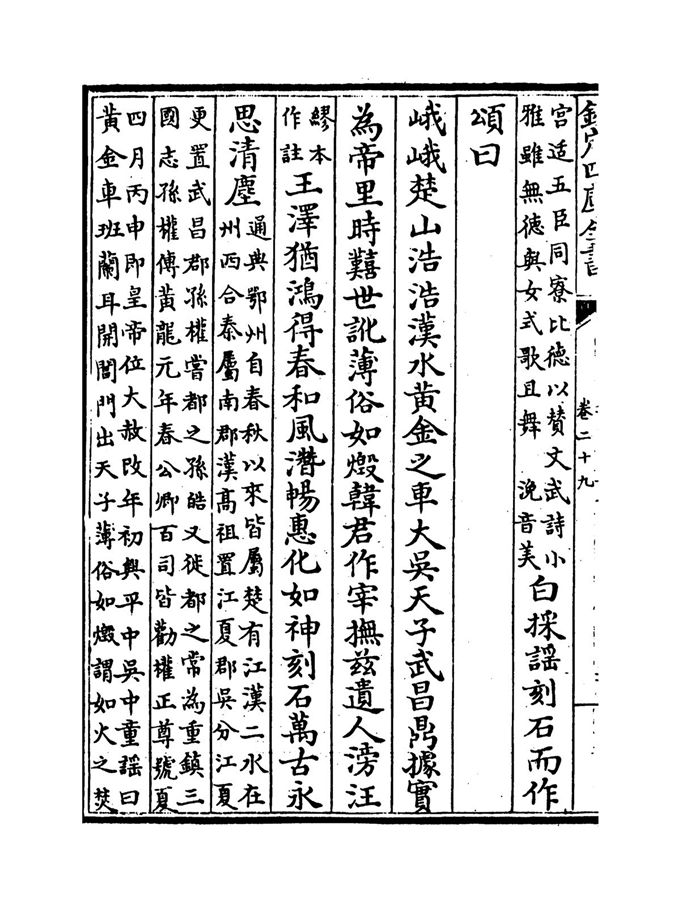 欽定四庫全書
卷二十九
宫适五臣同寮比徳以賛文武詩小
雅雖無徳與女式歌且舞　浼音美
白採謡刻石而作
頌曰
峨峨楚山浩浩漢水黄金之車大吳天子武昌鼎據實
為帝里時囏世訛薄俗如燬韓君作宰撫兹遺人滂汪
繆本
作註
王澤猶鴻得春和風潛暢惠化如神刻石萬古永
思清塵
通典鄂州自春秋以來皆屬楚有江漢二水在
州西合秦屬南郡漢髙祖置江夏郡吳分江夏
更置武昌郡孫權嘗都之孫皓又徙都之常為重鎮三
國志孫權傳黄龍元年春公卿百司皆勸權正尊號夏
四月丙申即皇帝位大赦改年初興平中吳中童謡曰
黄金車班蘭耳開閶門出天子薄俗如燬謂如火之焚